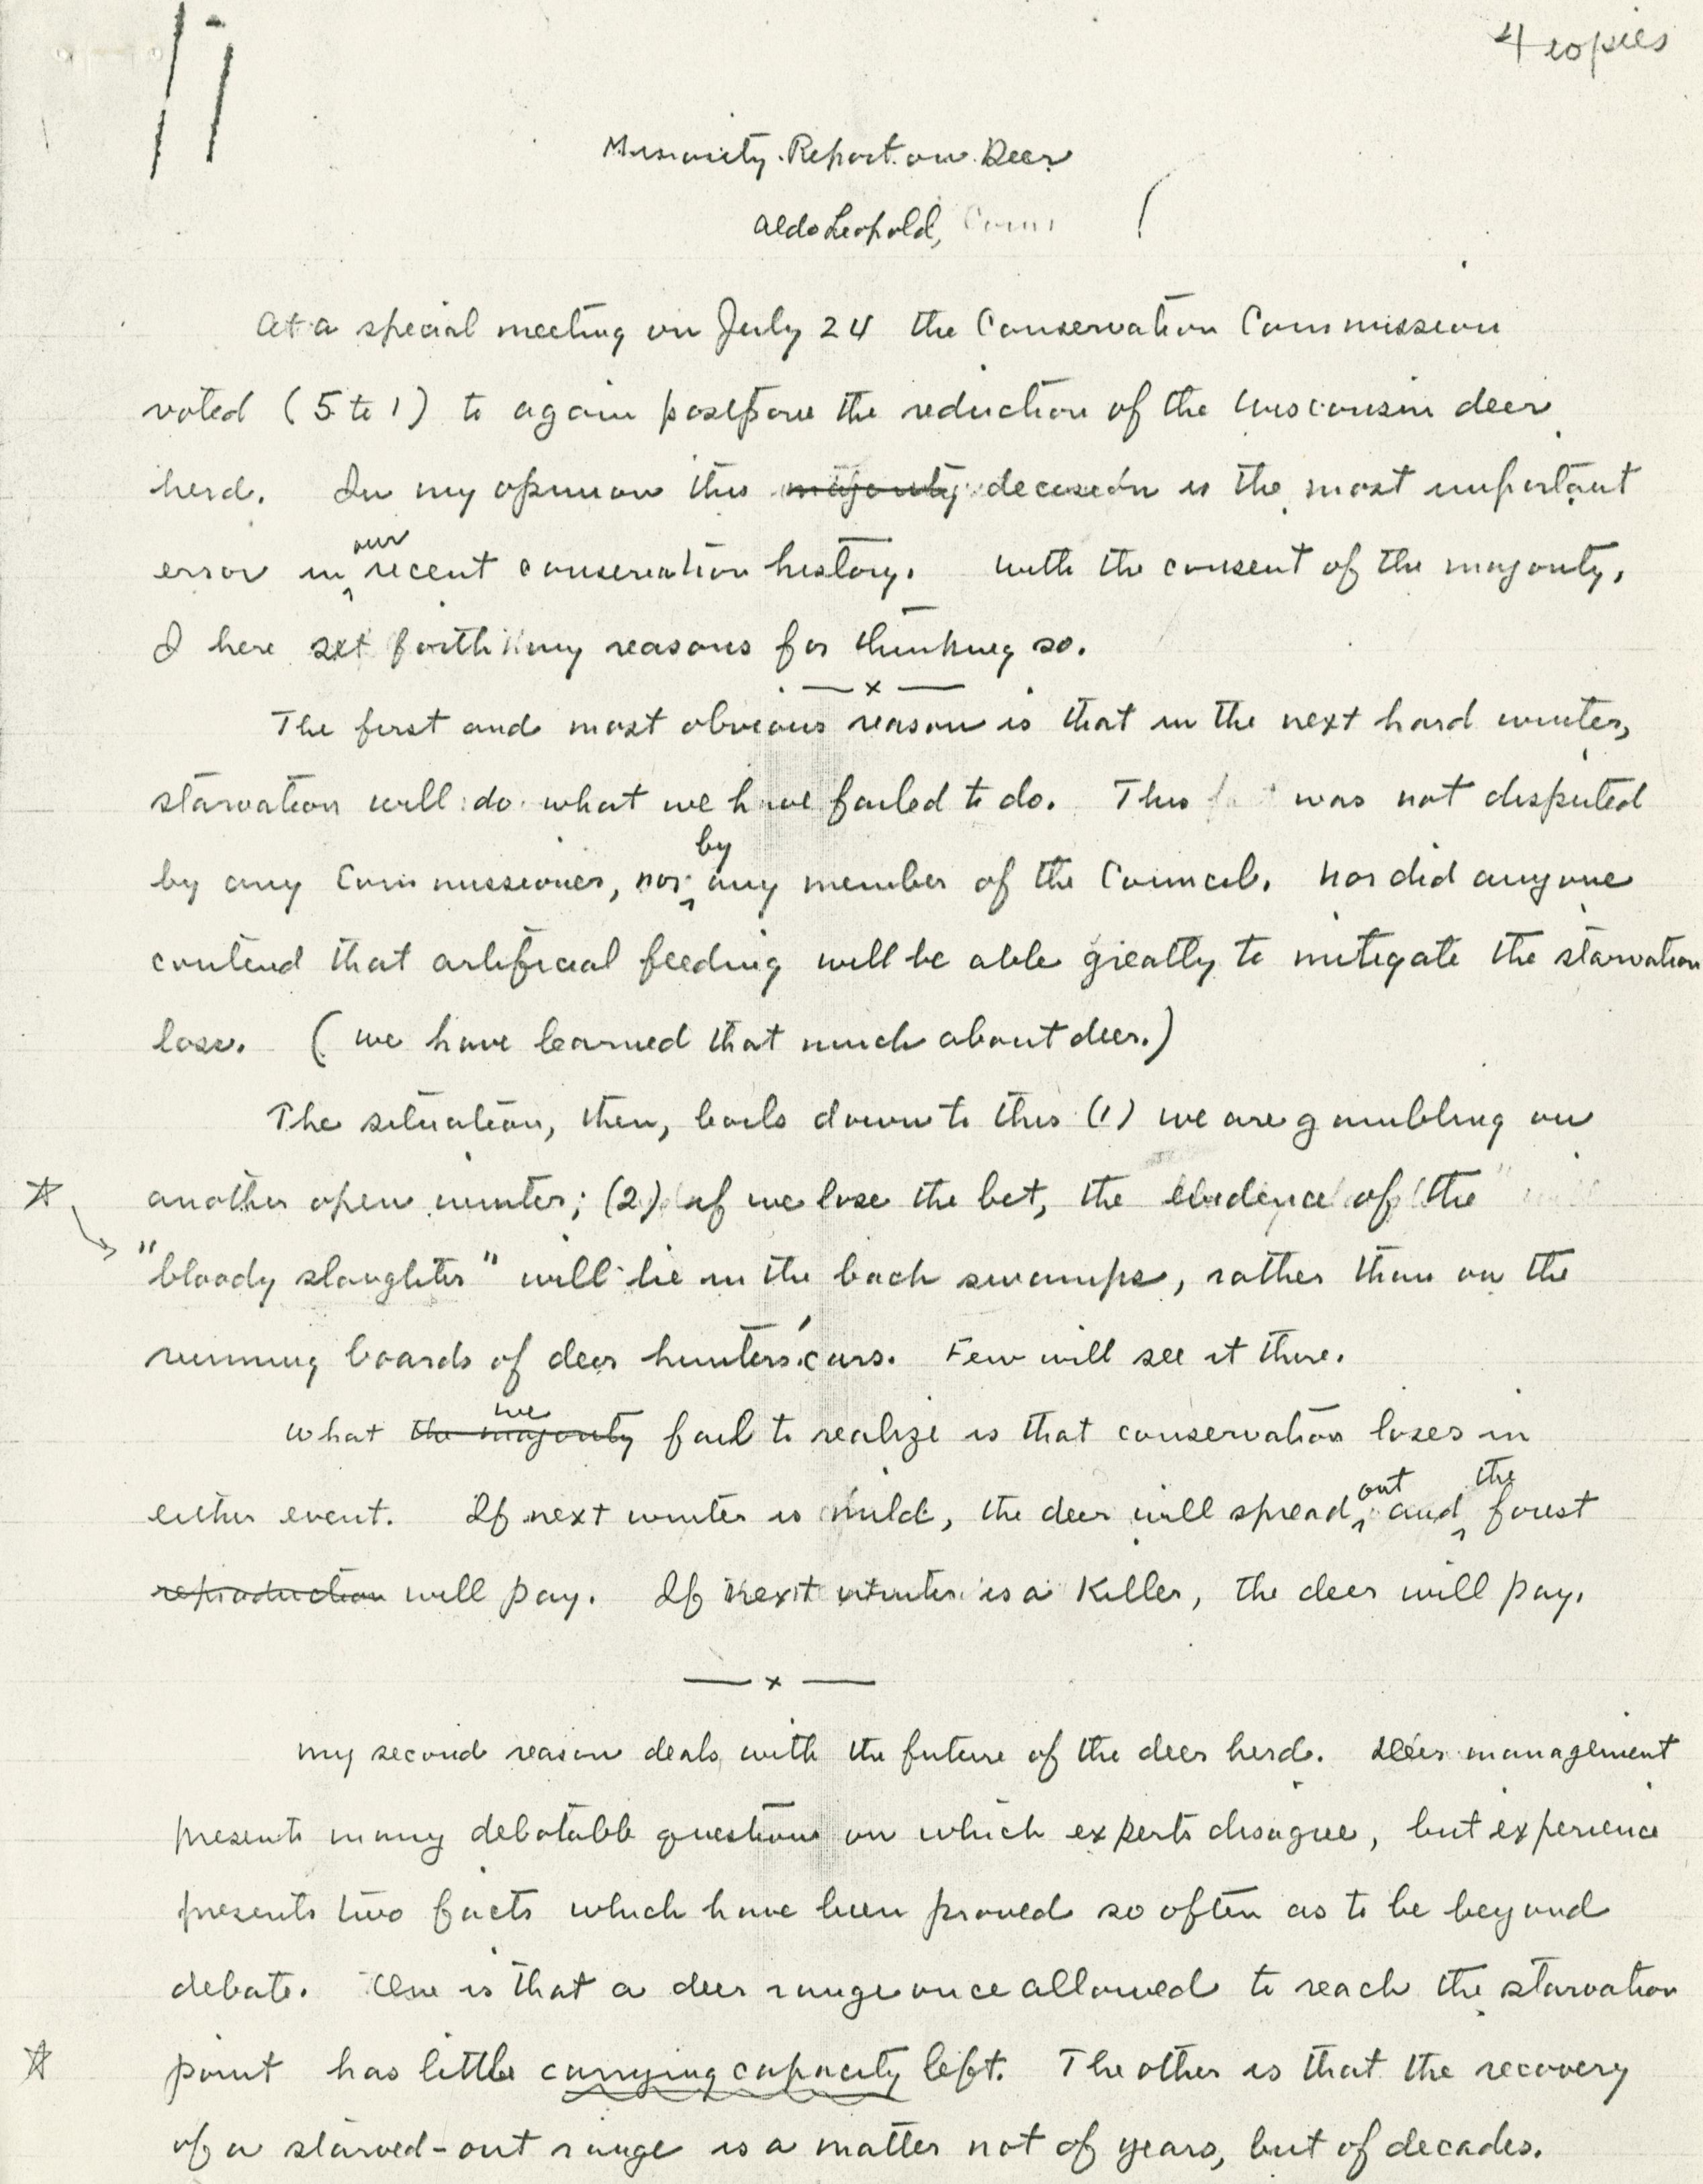 4 copies
Minority Report on Deer
Aldo Leopold,
At a special meeting on July 24 the Conservation Commission
voted (5 to 1) to again postpone the reduction of the Wisconsin deer
herd. In my opinion this majority decision is the most important
our
error in recent conservation history. With the consent of the majority,
I here set forth my reasons for thinking so.
— x —
The first and most obvious reason is that in the next hard winter,
starvation will do what we have failed to do. This was not disputed
by
by any Commissioner, nor any member of the Council. Nor did anyone
contend that artificial feeding will be able greatly to mitigate the starvation
loss. (We have learned that much about deer.)
The situation, then, boils down to this (1) we are gambling on
another open winter; (2) if we lose the bet, the evidence of the
"bloody slaughter" will lie in the back swamps, rather than on the
running boards of deer hunters' cars. Few will see it there.
we
What the majority fail to realize is that conservation loses in
out the
either event. If next winter is mild, the deer will spread, and forest
reproduction will pay. If next winter is a killer, the deer will pay.
— x —
My second reason deals with the future of the deer herd. Deer management
presents many debatable questions on which experts disagree, but experience
presents two facts which have been proved so often as to be beyond
debate. One is that a deer range once allowed to reach the starvation
point has little carrying capacity left. The other is that the recovery
of a starved-out range is a matter not of years, but of decades.